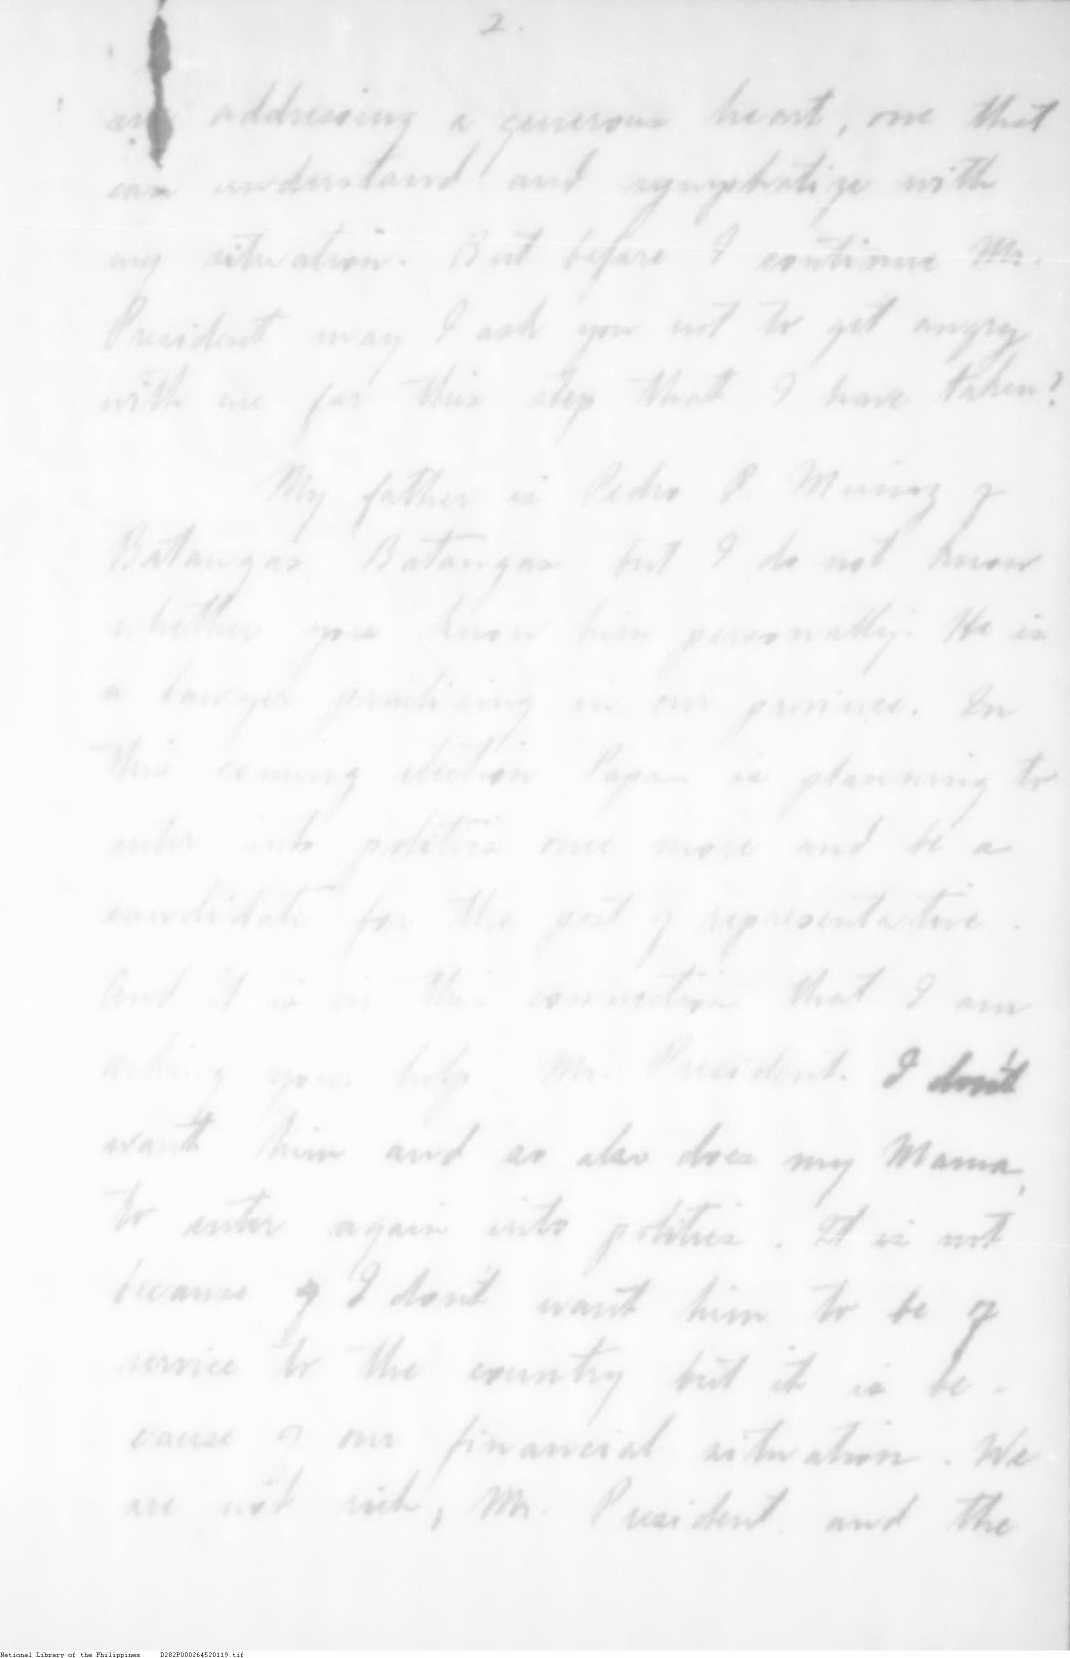 2.
am addressing a generous heart, one that
can understand and symphatize with
my situation. But before I continue Mr.
President may I ask you not to get angry
with me for this step that I have taken?
My father is Pedro P. Munoz of
Batangas Batangas but I do not know
whether you know him personally. He is
a lawyer practicing in our province. In
this coming election Papa is planning to
enter into politics once more and be a
candidate for the post of representative.
And it is in this connection that I am
asking your help Mr. President. I don't
want him and so also does my Mama,
to enter again into politics. It is not
because of I don't want him to be of
service to the country but it is be-
cause of our financial situation. We
are not rich, Mr. President and the
National Library of the Philippines D282P000264520119.tif